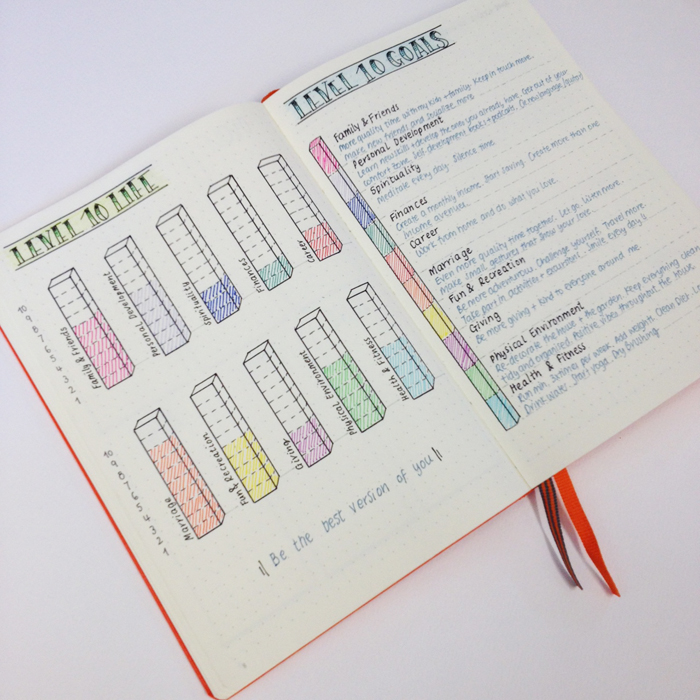 LEVEL 10 LIFE
10
9
8
7
6
5
4
3
2
1
Family & Friends
Personal Development
Spirituality
Finances
Career
10
9
8
7
6
5
4
3
2
1
Marriage
Fun & Recreation
Giving
Physical Environment
Health & Fitness
Be the best version of you
LEVEL 10 GOALS
Family & Friends
more quality time with my kids + family. Keep in touch more.
make new friends and socialise more.
Personal Development
Learn new skills + develop the ones you already have. Get out of your
comfort zone. Self development books + podcasts.
Spirituality
Meditate every day. Silence time.
Finances
Create a monthly income. Start saving. Create more than one
income avenue.
Career
Work from home and do what you love.
Marriage
Even more quality time together. Let go. Listen more.
Make small gestures that show your love.
Fun & Recreation
Be more adventurous. Challenge yourself. Travel more
Take part in activities + Smile every day!!
Giving
Be more giving + kind to everyone around me.
Physical Environment
Re-decorate the house + the garden. Keep everything clean
tidy and organised. Positive vibes throughout the house
Health & Fitness
Run min. 3x times per week. Add weights. Clean Diet.
Drink water. Start yoga. Dry brushing.